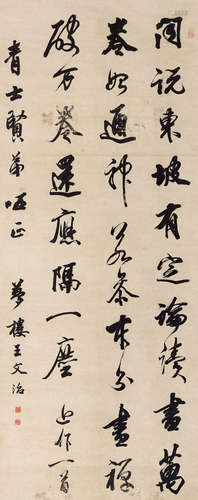 聞說東坡有定論讀書萬
卷始通神若參本分書禪
破万卷還應隔一塵 近作一首
青士賢弟哂正 夢樓王文治